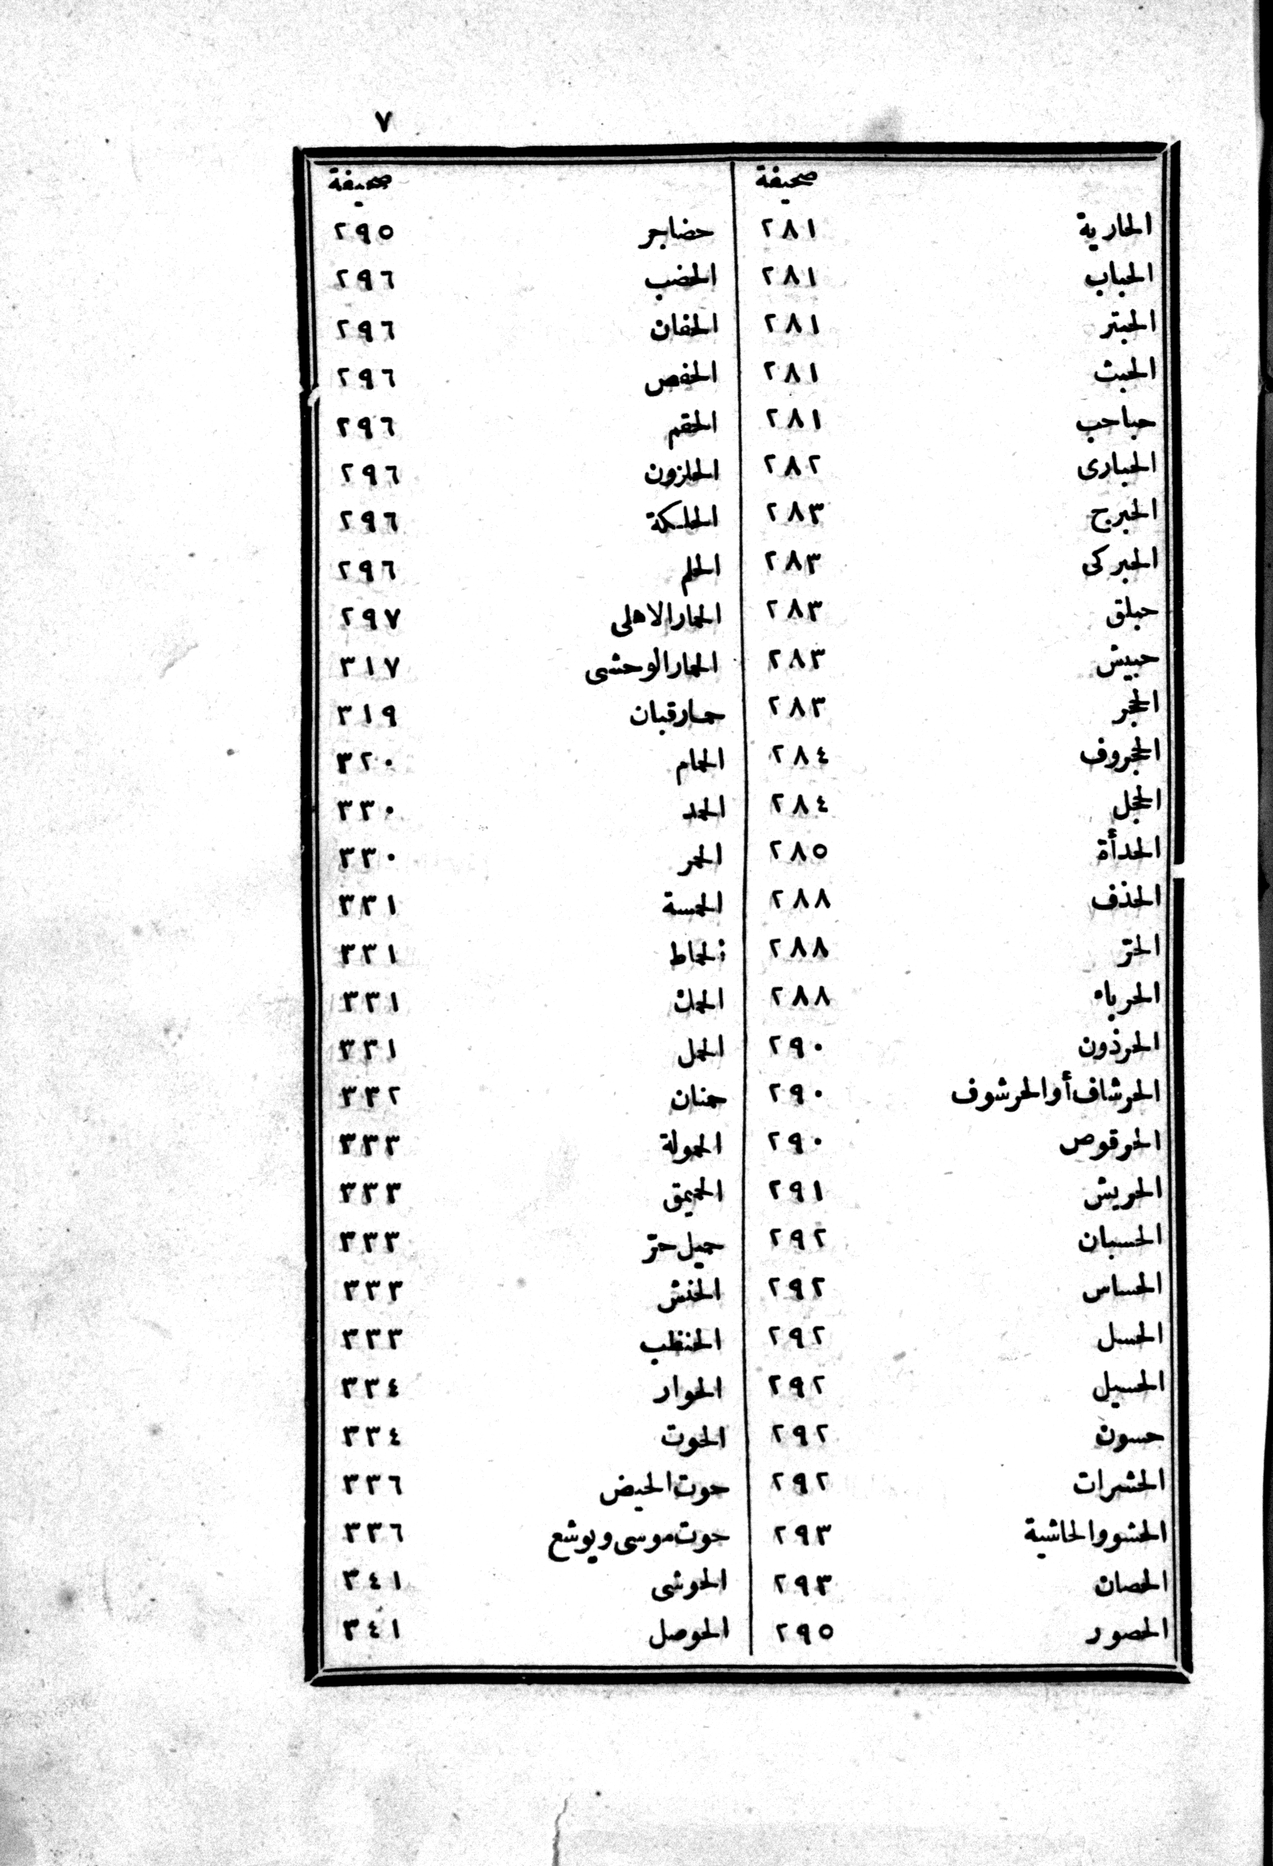 ٧
صحيفة
الحارية ٢٨١
الحباب ٢٨١
الحبتر ٢٨١
الحبث ٢٨١
حباحب ٢٨١
الحبارى ٢٨٢
الحبرج ٢٨٣
الحبركى ٢٨٣
حبلق ٢٨٣
حبيش ٢٨٣
الحجر ٢٨٣
الحجروف ٢٨٤
الحجل ٢٨٤
الحدأة ٢٨٥
الحذف ٢٨٨
الحرّ ٢٨٨
الحرباء ٢٨٨
الحرذون ٢٩٠
الحرشاف أو الحرشوف ٢٩٠
الحرقوص ٢٩٠
الحريش ٢٩١
الحسبان ٢٩٢
الحساس ٢٩٢
الحسل ٢٩٢
الحسيل ٢٩٢
حسون ٢٩٢
الحشرات ٢٩٢
الحشو والحاشية ٢٩٣
الحصان ٢٩٣
الحصور ٢٩٥
صحيفة
حضاجر ٢٩٥
الحضب ٢٩٦
الحفان ٢٩٦
الحفص ٢٩٦
الحقم ٢٩٦
الحلزون ٢٩٦
الحلكة ٢٩٦
الحلم ٢٩٦
الحمار الاهلى ٢٩٧
الحمار الوحشى ٣١٧
حمار قبان ٣١٩
الحمام ٣٢٠
الحمد ٣٣٠
الحمر ٣٣٠
الحمسة ٣٣١
الحماط ٣٣١
الحمك ٣٣١
الحمل ٣٣١
حمنان ٣٣٢
الحمولة ٣٣٣
الحميق ٣٣٣
حميل حرّ ٣٣٣
الحنش ٣٣٣
الحنظب ٣٣٣
الحوار ٣٣٤
الحوت ٣٣٤
حوت الحيض ٣٣٦
حوت موسى ويوشع ٣٣٦
الحوشى ٣٤١
الحوصل ٣٤١